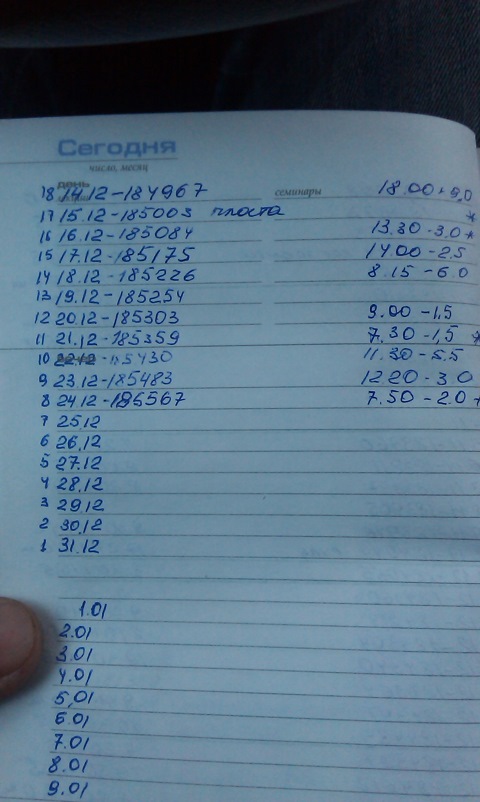 Сегодня
число, месяц
день
18 14.12-184967 семинары 18.00+9,0
17 15.12-185003 *
16 16.12-185084 13.30-3.0*
15 17.12-185175 14.00-2.5
14 18.12-185226 8.15-6.0
13 19.12-185254
12 20.12-185303 9.00-1,5
11 21.12-185359 7.30-1,5*
10 22.12-185430 11.30-5.5
9 23.12-185483 12.20-3.0
8 24.12-185567 7.50-2.0+
7 25.12
6 26.12
5 27.12
4 28.12
3 29.12
2 30.12
1 31.12
1.01
2.01
3.01
4.01
5,01
6.01
7.01
8.01
9.01